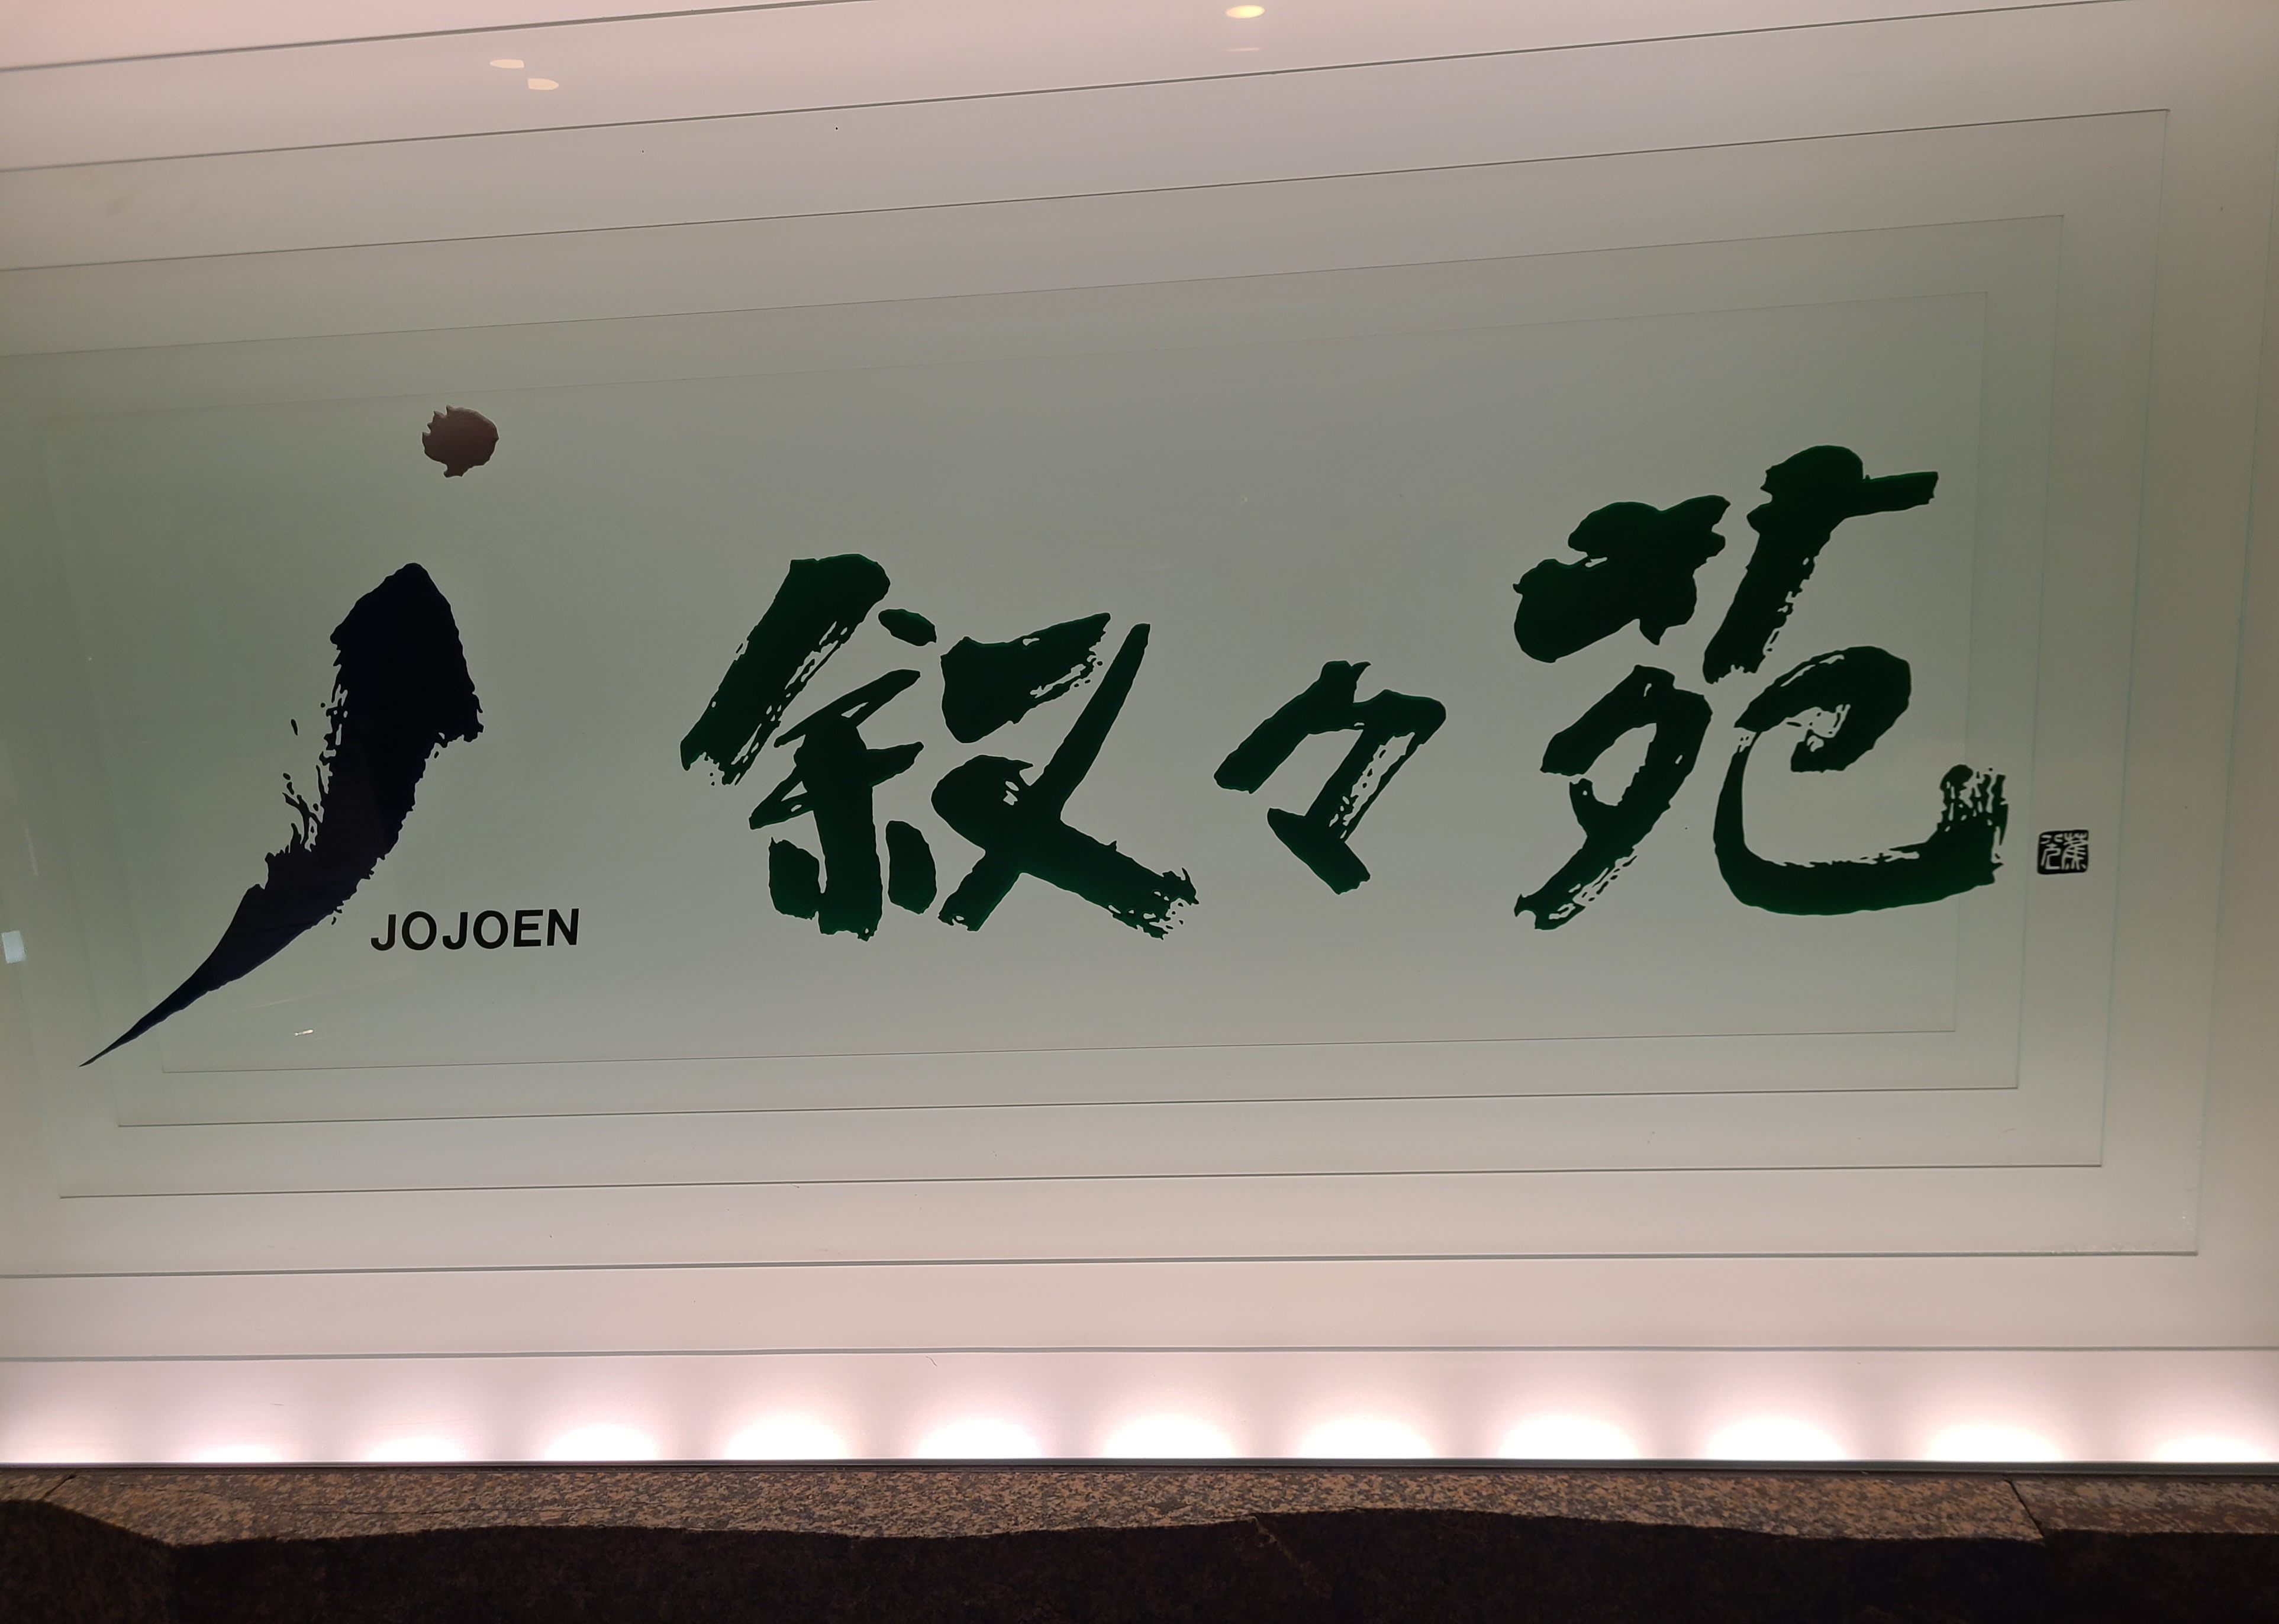 JOJOEN
叙々苑